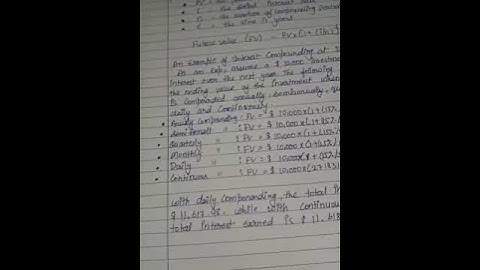 • i = the stated interest rate
• n = the number of compounding periods
• t = the time in years
Future value (FV) = PV x [1 + (i/n)
An Example of Interest Compounding at
As an exp, assume a $ 10,000 investment
interest over the next year. The following
the ending value of the investment when
is compounded annually, semiannually,
daily and continuously.
• Annually Compounding : FV = $ 10,000 x (1 + (15%/
• Semi-Annual " : FV = $ 10,000 x (1 + (15%
• Quarterly " : FV = $ 10,000 x (1 + (15%
• Monthly " : FV = $ 10,000 x (1 + (15%
• Daily " : FV = $ 10,000 x (1 + (15%/
• Continuous " : FV = $ 10,000 x (2.7183
with daily compounding, the total in
$ 11,617. while with continuou
total interest earned is $ 11,618